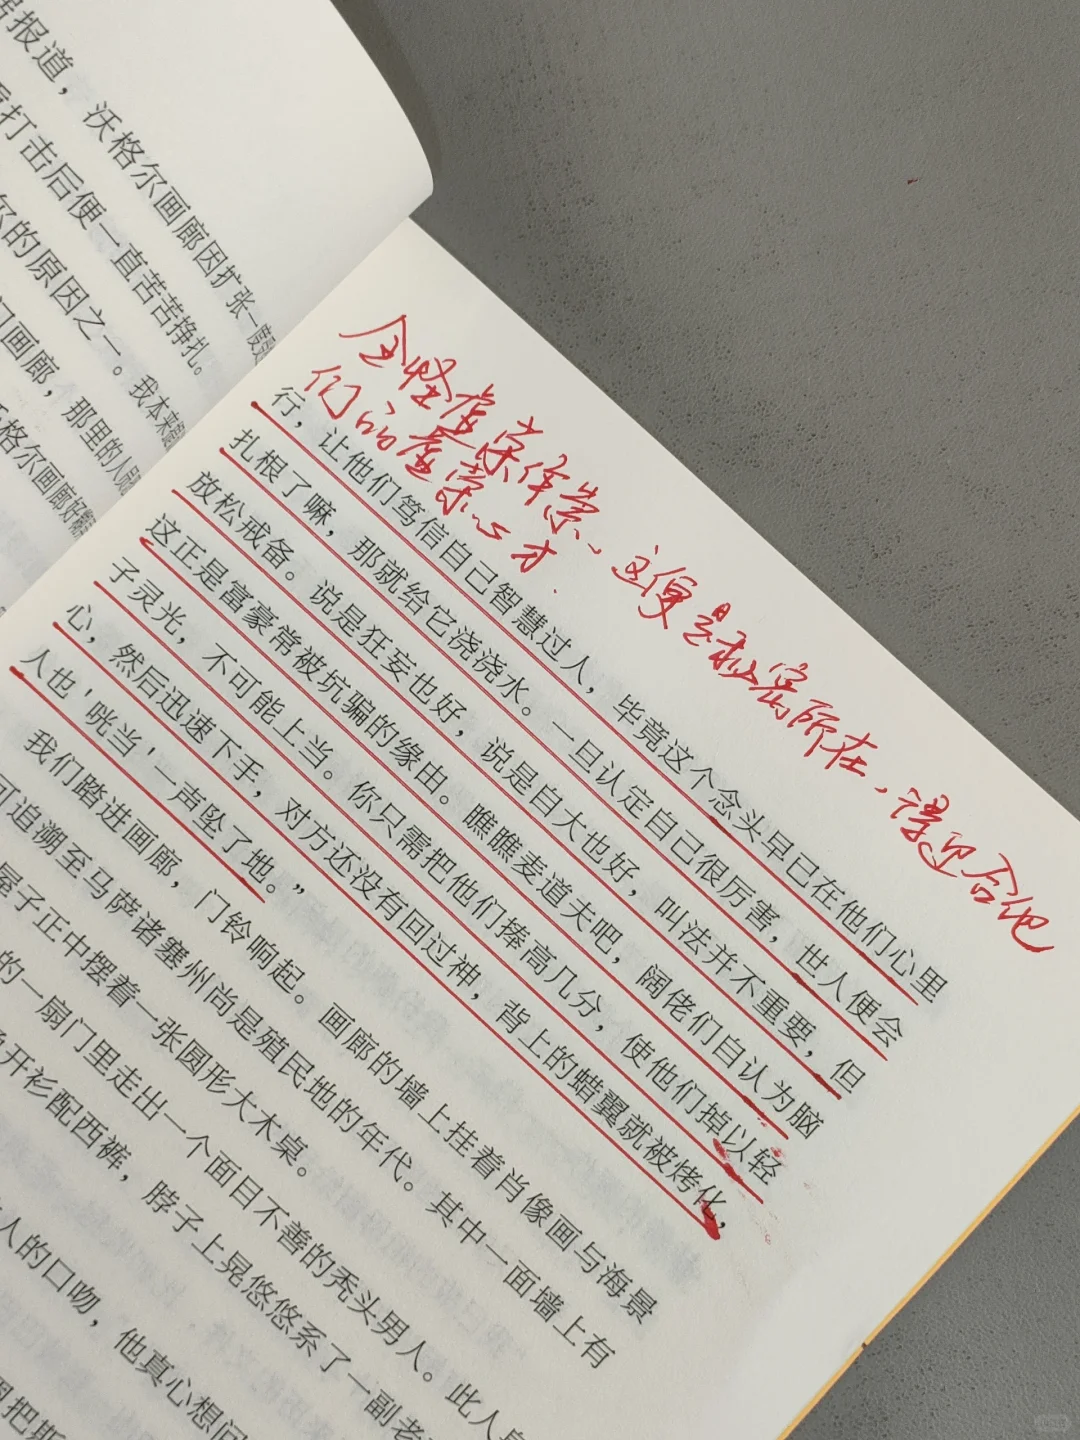 居报道，沃格尔画廊因扩张一度
打击后便一直苦苦挣扎。
尔的原因之一。我本来
门画廊，那里的人
沃格尔画廊好
全怪虚荣作祟、这便是秘密所在，得迎合他
们的虚荣心才
行，让他们笃信自己智慧过人，毕竟这个念头早已在他们心里
扎根了嘛，那就给它浇浇水。一旦认定自己很厉害，世人便会
放松戒备。说是狂妄也好，说是自大也好，叫法并不重要，但
这正是富豪常被坑骗的缘由。瞧瞧麦道夫吧，阔佬们自认为脑
子灵光，不可能上当。你只需把他们捧高几分，使他们掉以轻
心，然后迅速下手，对方还没有回过神，背上的蜡翼就被烤化，
人也‘咣当’一声坠了地。”
我们踏进画廊，门铃响起。画廊的墙上挂着肖像画与海景
可追溯至马萨诸塞州尚是殖民地的年代。其中一面墙上有
屋子正中摆着一张圆形大木桌。
的一扇门里走出一个面目不善的秃头男人。此人身
开衫配西裤，脖子上晃悠悠系了一副老
人的口吻，他真心想问
把斯